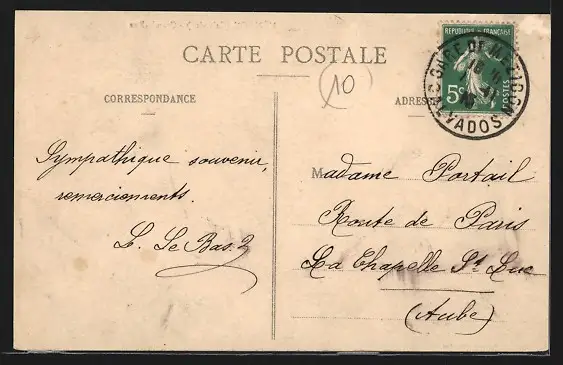 CARTE POSTALE
(10)
REPUBLIQUE FRANÇAISE
5c
POSTES
GARE DE MÉZIDON
CALVADOS
CORRESPONDANCE
ADRESSE
Sympathique souvenir,
remerciements.
L. Le Bas
Madame Portail
Route de Paris
La Chapelle St Luc
(Aube)